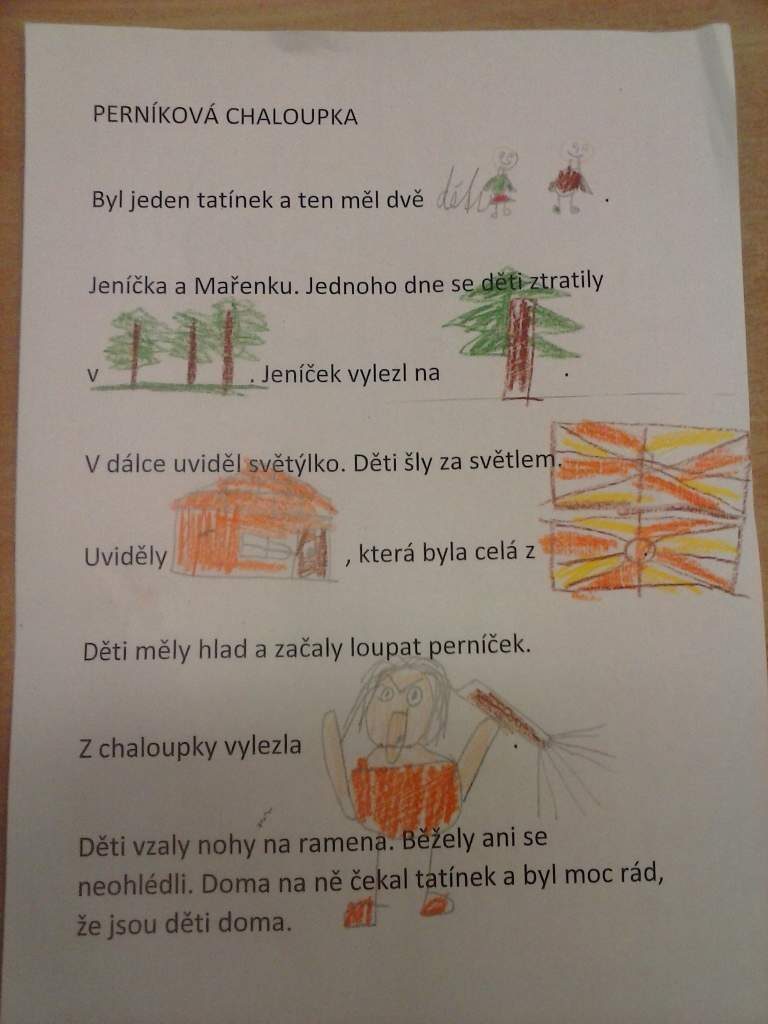 PERNÍKOVÁ CHALOUPKA
Byl jeden tatínek a ten měl dvě děti .
Jeníčka a Mařenku. Jednoho dne se děti ztratily
v . Jeníček vylezl na .
V dálce uviděl světýlko. Děti šly za světlem.
Uviděly , která byla celá z
Děti měly hlad a začaly loupat perníček.
Z chaloupky vylezla .
Děti vzaly nohy na ramena. Běžely ani se
neohlédli. Doma na ně čekal tatínek a byl moc rád,
že jsou děti doma.